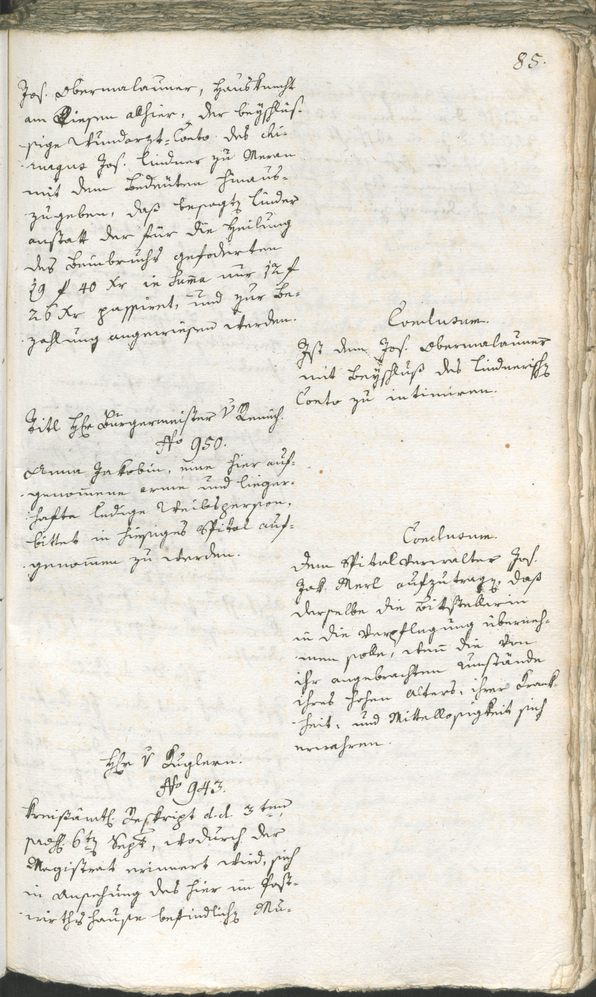 85.
Jos. Obermalauner, Hausknecht
am Riesen alhier, der beyschlüs-
sige Wundarzt-Conto des Chi-
rurgus Jos. Lindner zu Meran
mit dem Bedeuten hinaus-
zugeben, daß besagter Lindner
anstatt der für die Heilung
des Beinbruchs geforderten
19 f 40 Xr in Summa nur 12 f
26 Xr passiret, und zur Be-
zahlung angewiesen werden.
Conclusum.
Ist dem Jos. Obermalauner
mit Beyschluß des Lindnerisch
Conto zu intimiren.
Titl Hr Bürgermeister v
No 950.
Anna Jakobin, eine hier auf-
genommene arme und lieger-
hafte ledige Weibsperson,
bittet in hiesiges Spital auf-
genommen zu werden.
Conclusum.
Dem Spitalverwalter Jos.
Jak. Merl aufzutragen, daß
derselbe die Bittstellerin
in die Verpflegung überneh-
men solle, wenn die von
ihr angebrachten Umstände
ihres hohen Alters, ihrer Krank-
heit, und Mittellosigkeit sich
erwahren.
Hr v Kuglern.
No 943.
Kreisämtl. Reskript d.d. 3ten,
praes. 6ten Sept., wodurch der
Magistrat erinnert wird, sich
in Ansehung des hier im Gast-
wirthshause befindlichen Mu-